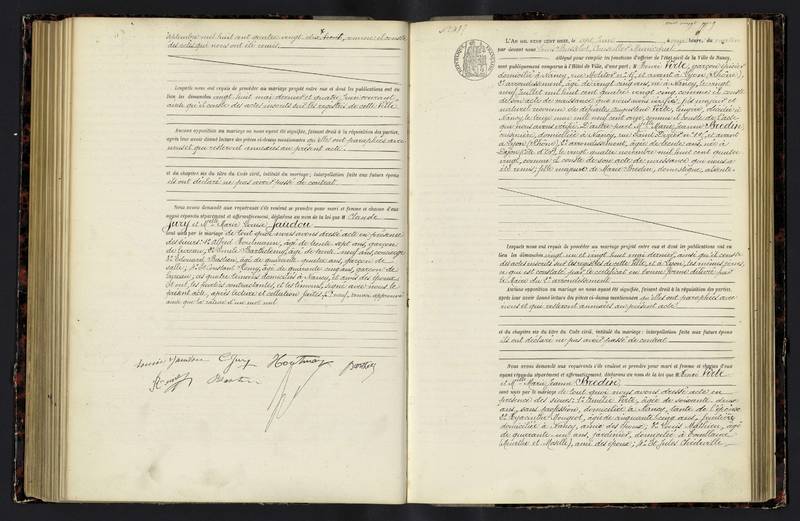 Septembre mil huit cent quatre vingt dix huit, comme il conste
des actes qui nous ont été remis.
Lesquels nous ont requis de procéder au mariage projeté entre eux et dont les publications ont eu
lieu les dimanches vingt huit mai dernier et quatre juin courant,
ainsi qu'il conste des actes inscrits sur les registres de cette Ville.
Aucune opposition au mariage ne nous ayant été signifiée, faisant droit à la réquisition des parties,
après leur avoir donné lecture des pièces ci-dessus mentionnées qu'elles ont paraphées avec
nous et qui resteront annexées au présent acte.
et du chapitre six du titre du Code civil, intitulé du mariage; interpellation faite aux futurs époux
ils ont déclaré ne pas avoir passé de contrat.
Nous avons demandé aux requérants s'ils veulent se prendre pour mari et femme et chacun d'eux
ayant répondu séparément et affirmativement, déclarons au nom de la loi que M Claude
Jury et Melle Marie Louise Jandou
sont unis par le mariage de tout quoi nous avons dressé acte en présence
des sieurs: 1° Alfred âgé de trente sept ans, garçon
de bureau; 2° Barthélemy, âgé de trente neuf ans, concierge
3° Edouard Bastien, âgé de quarante quatre ans, garçon de
salle; 4° et Gustave Remy, âgé de quarante cinq ans, garçon de
bureau; ces quatre témoins domiciliés à Nancy, et amis des époux.
Et ont, les parties contractantes, et les témoins, signé avec nous le
présent acte, après lecture et collation faites
ainsi que la rature d'un mot nul
Jury
L'AN MIL NEUF CENT ONZE, le sept Juin à onze heures, du matin
par devant nous Louis Conseiller Municipal
délégué pour remplir les fonctions d'officier de l'état civil de la Ville de Nancy,
sont publiquement comparus à l'Hôtel de Ville, d'une part: M Henri Virte, garçon
domicilié à Nancy, rue et avant à Lyon (Rhône)
arrondissement, âgé de vingt cinq ans, né à Nancy, le vingt
neuf Juillet mil huit cent quatre vingt cinq comme il conste
de son acte de naissance que nous avons vérifié; fils majeur et
naturel reconnu de défunte Augustine Virte, lingère, décédée à
Nancy le onze mai mil neuf cent onze, comme il conste de l'acte
que nous avons vérifié. D'autre part: Melle Marie Jeanne Bredin,
cuisinière, domiciliée à Nancy, rue Saint Dizier n° et avant
à Lyon (Rhône), arrondissement, âgée de trente ans, née à
(Côte d'Or), le vingt quatre novembre mil huit cent quatre
vingt, comme il conste de son acte de naissance qui nous a
été remis; fille majeure de Marie Bredin, domestique, absente.
Lesquels nous ont requis de procéder au mariage projeté entre eux et dont les publications ont eu
lieu les dimanches vingt un et vingt huit mai dernier, ainsi qu'il conste
des actes inscrits sur les registres de cette Ville, et à Lyon, les mêmes jours,
ce qui est constaté par le certificat en bonne forme délivré par
le Maire du arrondissement.
Aucune opposition au mariage ne nous ayant été signifiée, faisant droit à la réquisition des parties,
après leur avoir donné lecture des pièces ci-dessus mentionnées qu'elles ont paraphées avec
nous et qui resteront annexées au présent acte.
et du chapitre six du titre du Code civil, intitulé du mariage; interpellation faite aux futurs époux
ils ont déclaré ne pas avoir passé de contrat.
Nous avons demandé aux requérants s'ils veulent se prendre pour mari et femme et chacun d'eux
ayant répondu séparément et affirmativement, déclarons au nom de la loi que M Henri Virte
et Melle Marie Jeanne Bredin
sont unis par le mariage de tout quoi nous avons dressé acte en
présence des sieurs: 1° Amélie Virte, âgée de soixante deux
ans, sans profession, domiciliée à Nancy, tante de l'époux
2° Hyacinthe Mougeot, âgée de cinquante cinq ans, fruitière,
domiciliée à Nancy, amie des époux; 3° Louis Mathieu, âgé
de quarante un ans, jardinier, domicilié à Tomblaine
(Meurthe et Moselle), ami des époux; 4° et Jules Chédeville